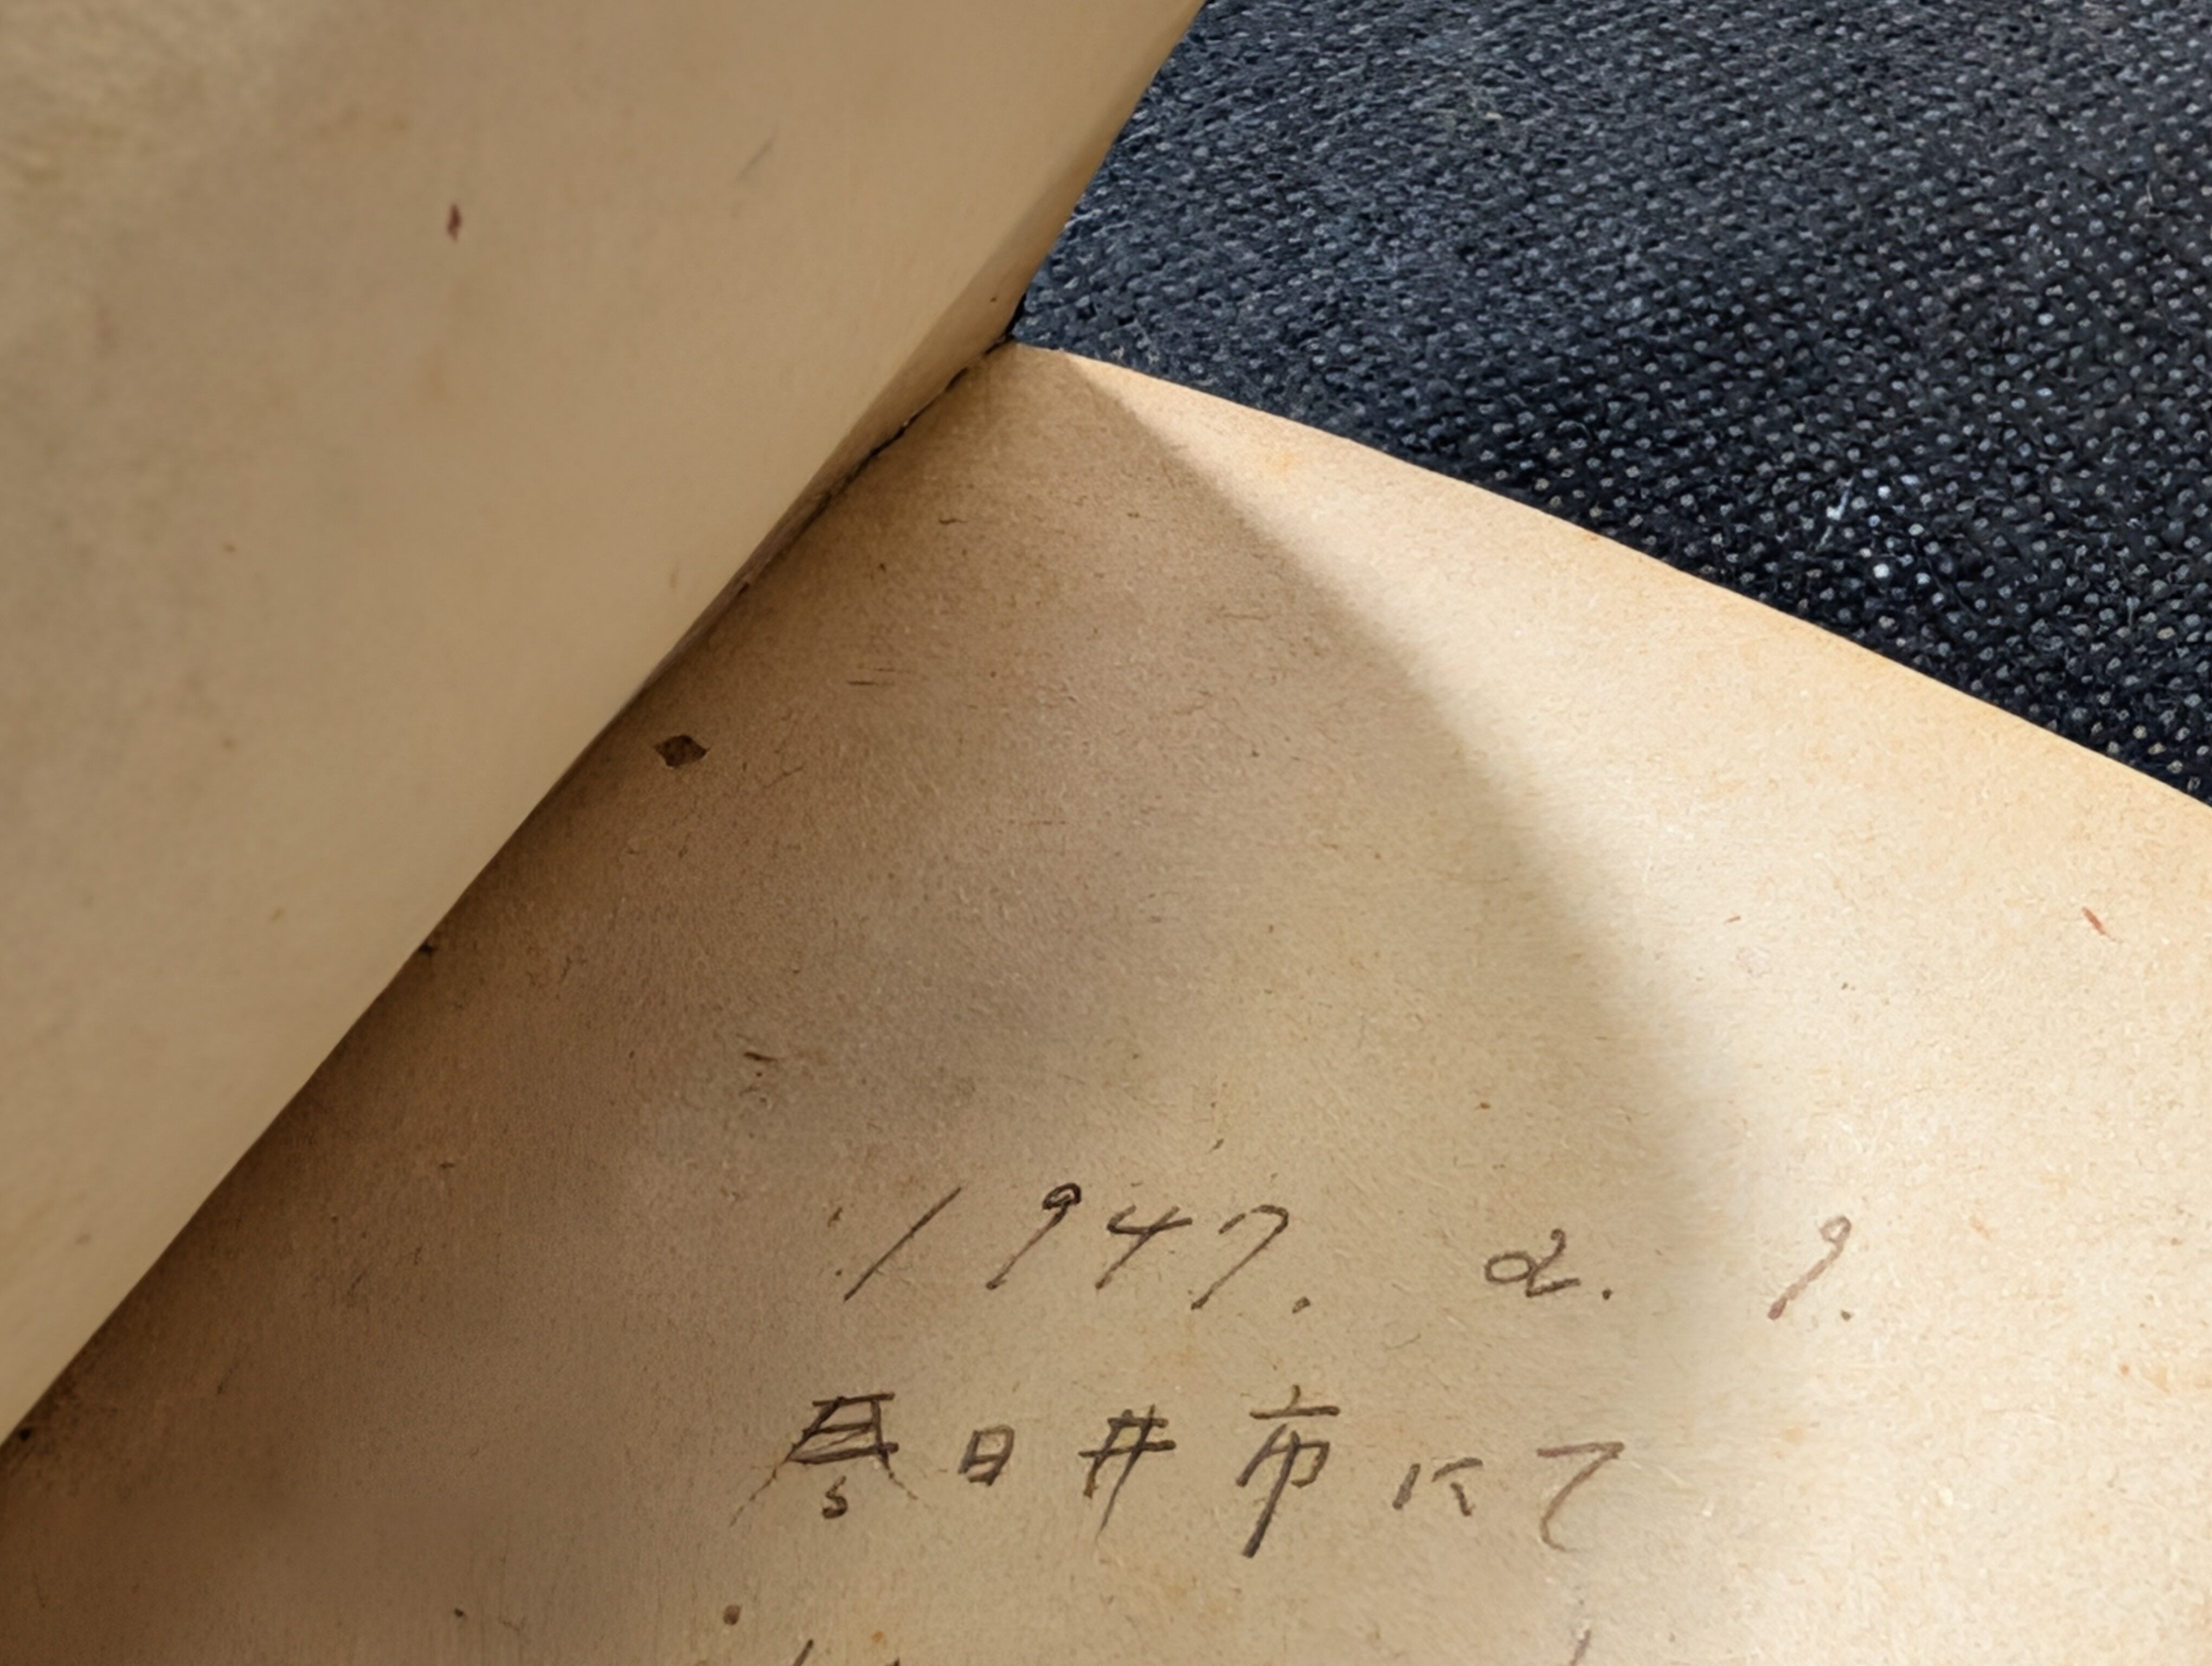 1947. 2. 9.
春日井市にて